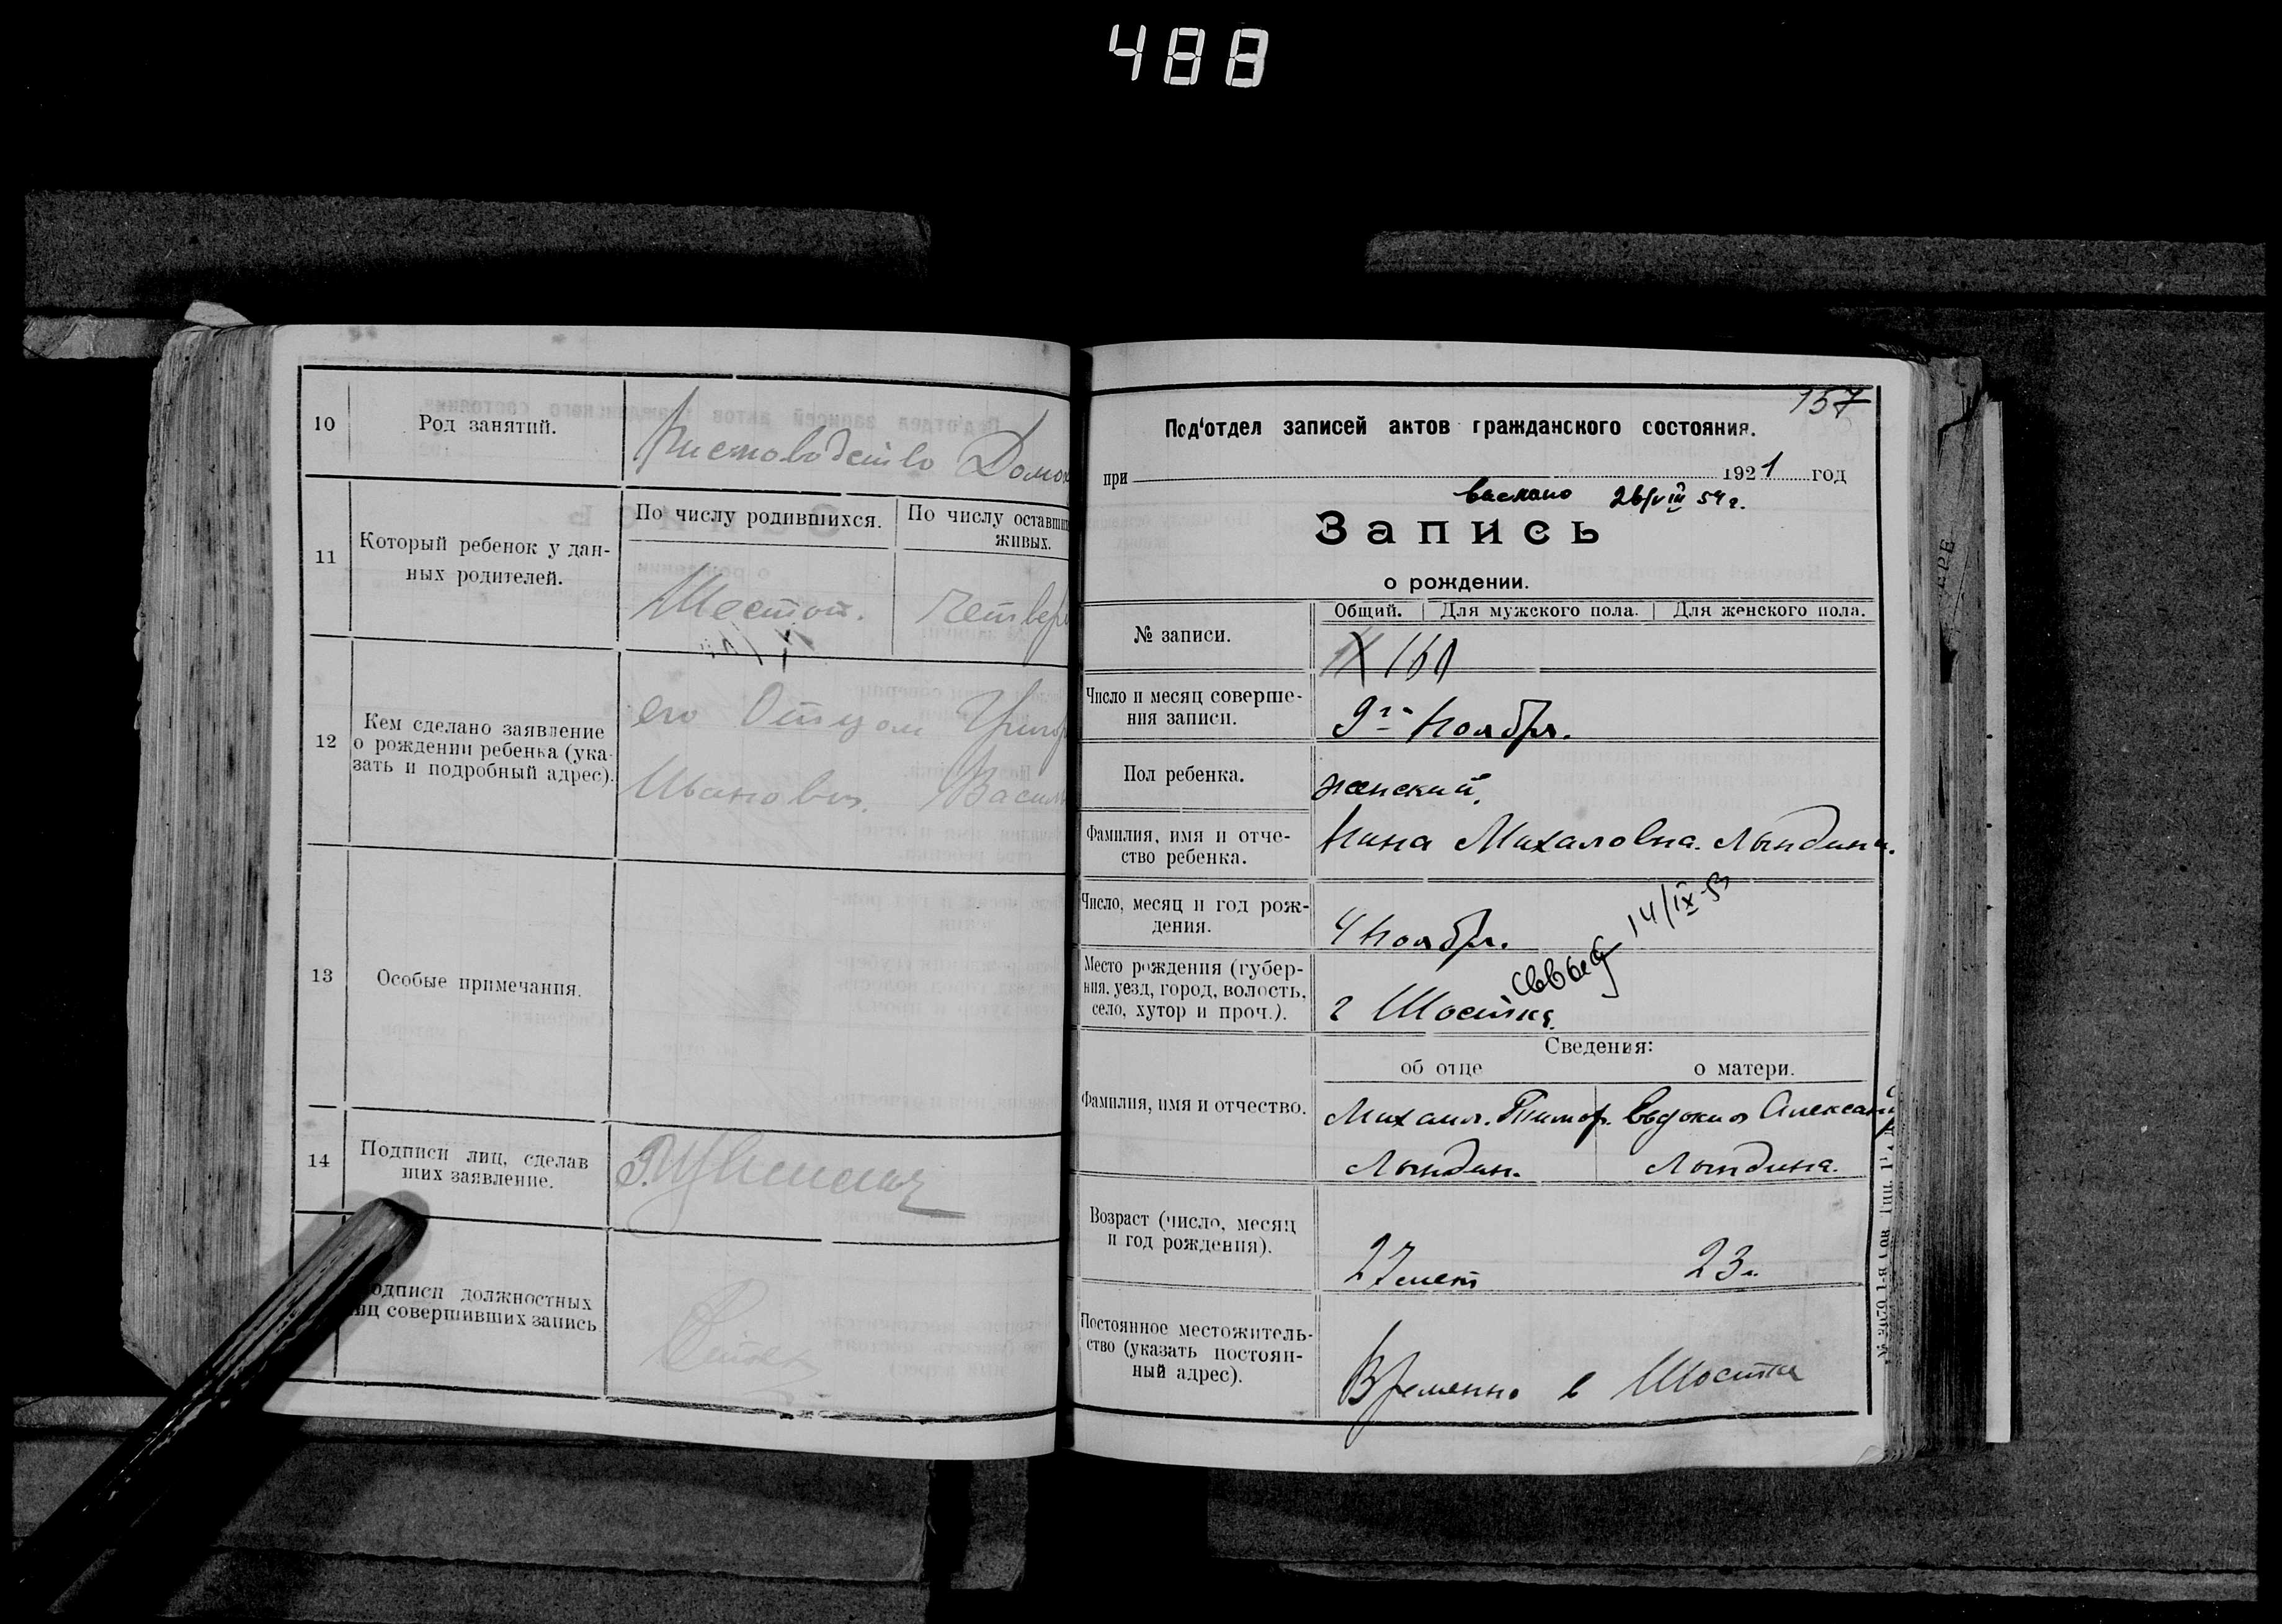 488
10
Род занятий.
11
Который ребенок у дан-
ных родителей.
По числу родившихся.
По числу оставши
живых.
Шестой.
12
Кем сделано заявление
о рождении ребенка (ука-
зать и подробный адрес).
его Отцом Григор
Иванович. Васил
13
Особые примечания.
14
Подписи лиц, сделав
ших заявление.
одписи должностных
иц совершивших запись
157
Под'отдел записей актов гражданского состояния.
при 1921 год
26/VIII 54 г.
Запись
о рождении.
№ записи.
Общий. Для мужского пола. Для женского пола.
Число и месяц соверше-
ния записи.
9го Ноября.
Пол ребенка.
женский.
Фамилия, имя и отче-
ство ребенка.
Нина Михаловна. Лындина.
Число, месяц и год рож-
дения.
4 Ноября.
14/IX-53
Место рождения (губер-
ния, уезд, город, волость,
село, хутор и проч.).
г Шостка.
Сведения:
об отце
о матери.
Фамилия, имя и отчество.
Михаил. Тимоф.
Лындин.
Евдокия Алексан
Лындина.
Возраст (число, месяц
и год рождения).
27 лет
23 л.
Постоянное местожитель-
ство (указать постоян-
ный адрес).
Временно в Шостке